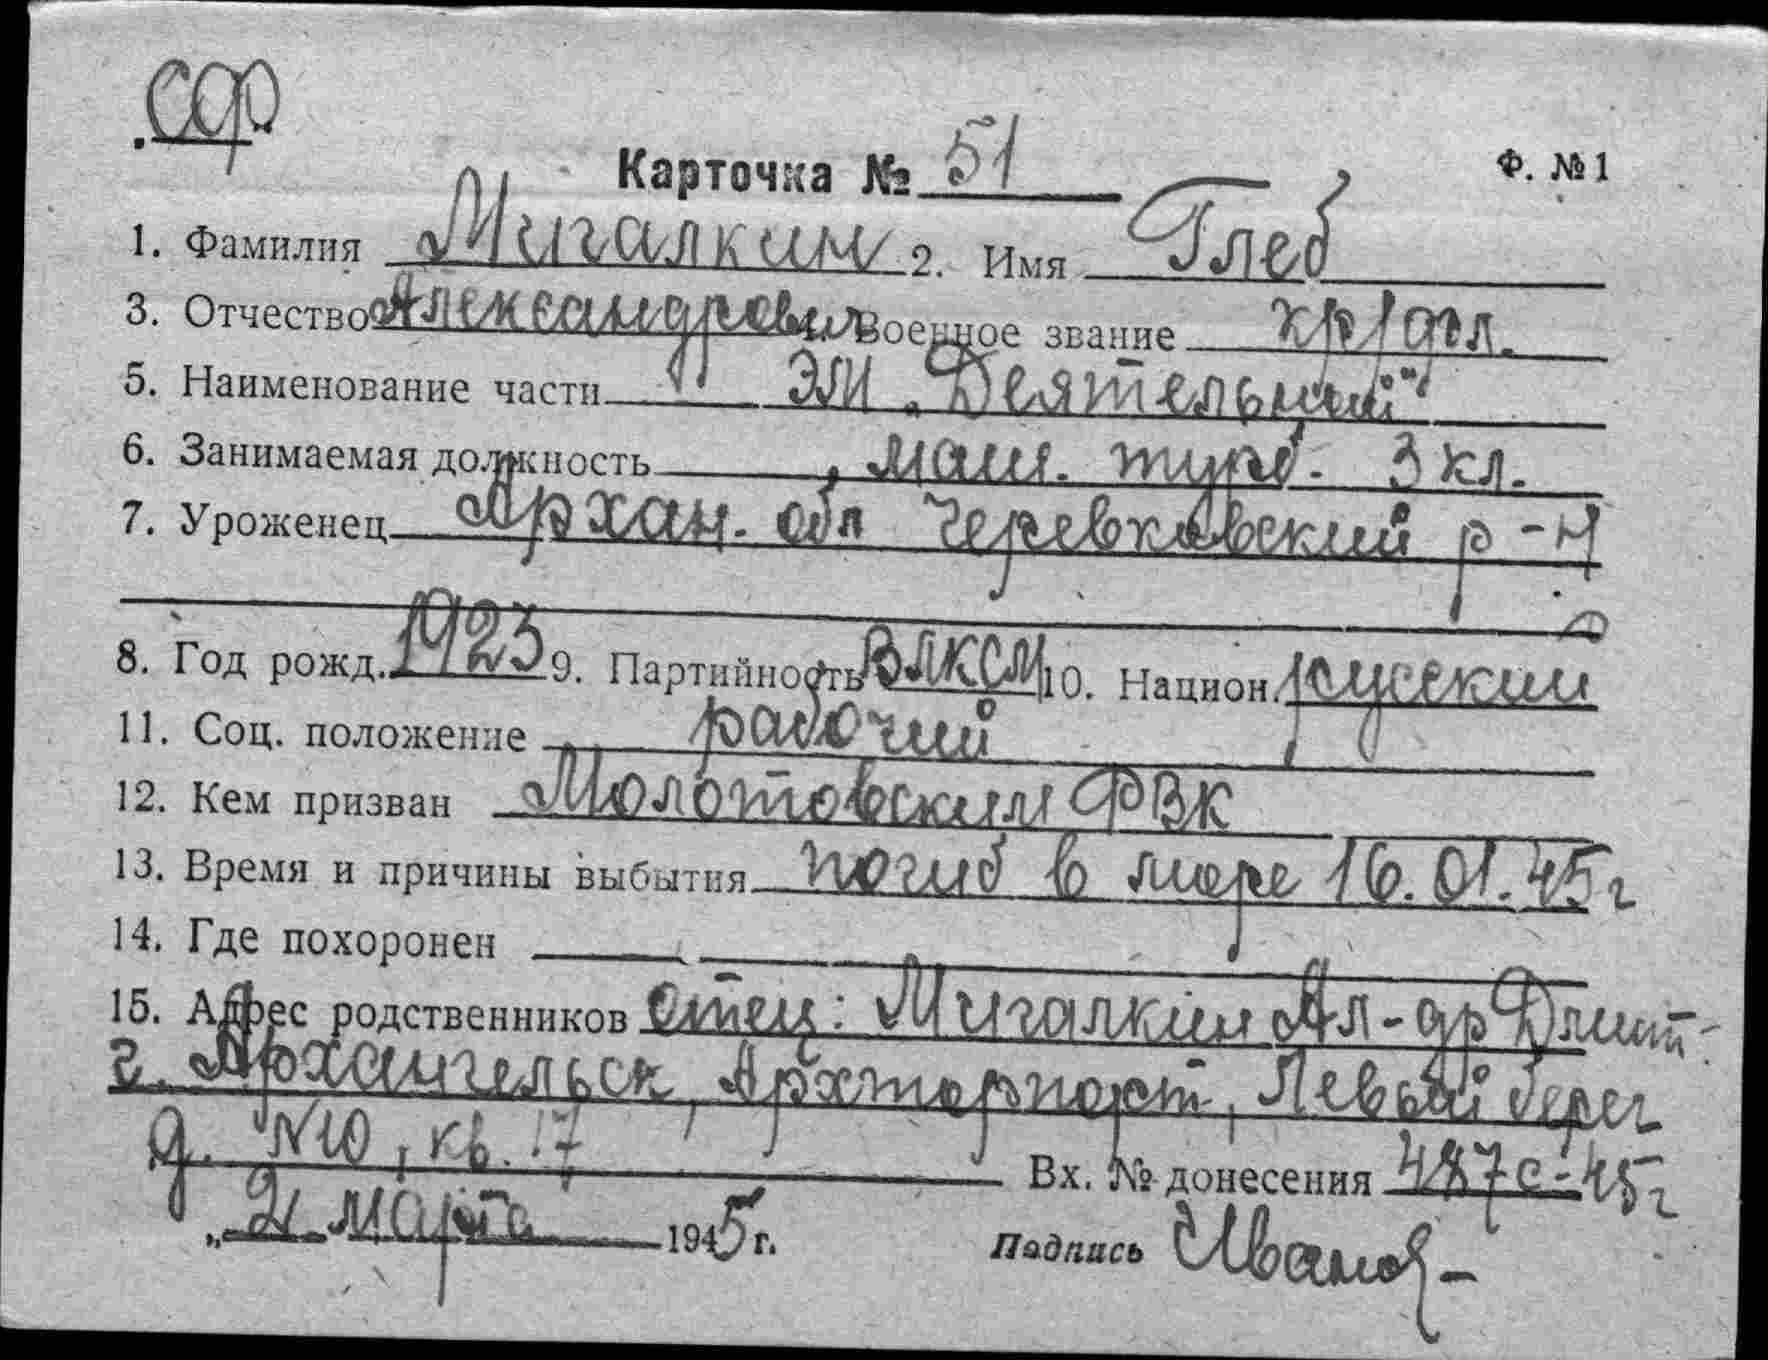 СФ
Карточка № 51
Ф. № 1
1. Фамилия Мигалкин 2. Имя Глеб
3. Отчество Александрович 4. Военное звание кр/фл.
5. Наименование части ЭМ „Деятельный"
6. Занимаемая должность маш. турб. 3 кл.
7. Уроженец Архан. обл Черевковский р-н
8. Год рожд. 1923 9. Партийность ВЛКСМ 10. Национ. русский
11. Соц. положение рабочий
12. Кем призван Молотовским ФВК
13. Время и причины выбытия погиб в море 16.01.45 г
14. Где похоронен
15. Адрес родственников отец: Мигалкин Ал-др Дмит.
г. Архангельск, Архторпорт, Левый берег
д. №10, кв. 17
Вх. № донесения 487с-45 г
„21 марта 1945 г. Подпись Иванов